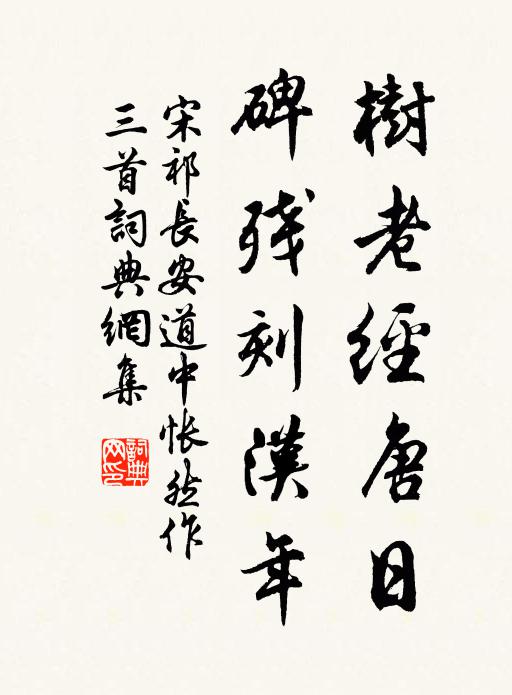 樹老經唐日
碑殘刻漢年
宋祁長安道中悵然作
三首詞典網集
詞典
网印